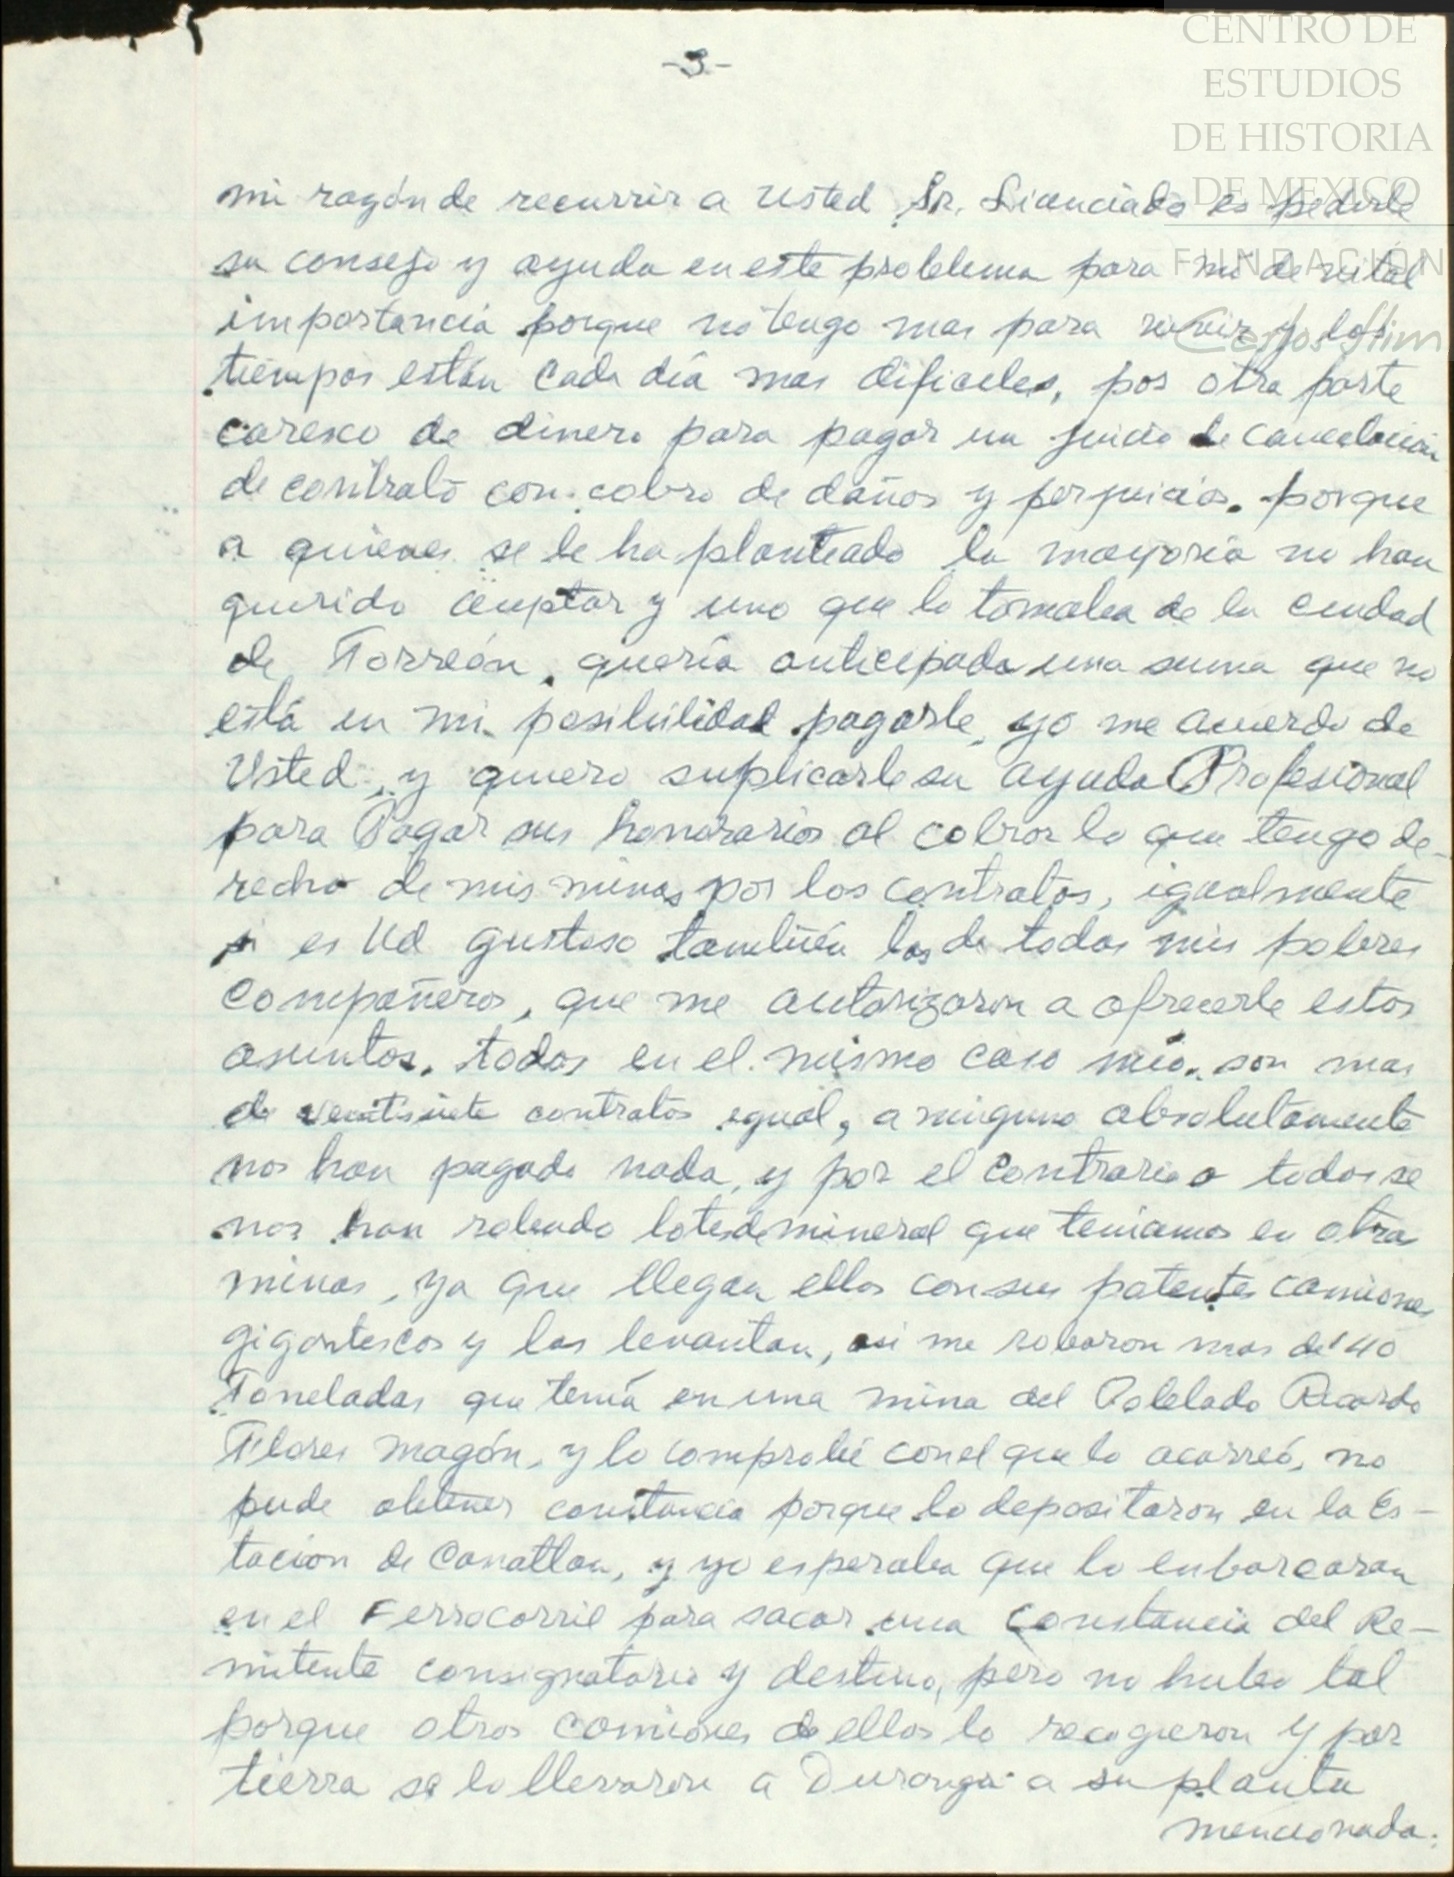 -3-
CENTRO DE
ESTUDIOS
DE HISTORIA
DE MEXICO
FUNDACIÓN
Carlos Slim
mi razón de recurrir a Usted Sr. Licenciado es pedirle
su consejo y ayuda en este problema para mi de vital
importancia porque no tengo mas para vivir y los
tiempos están cada día mas dificiles, por otra parte
caresco de dinero para pagar un juicio de cancelación
de contrato con cobro de daños y perjuicios. porque
a quienes se le ha planteado la mayoría no han
querido aceptar y uno que lo tomaba de la ciudad
de Torreón, quería anticipada una suma que no
está en mi posibilidad pagarle, yo me acuerdo de
Usted, y quiero suplicarle su ayuda Profesional
para Pagar sus honorarios al cobrar lo que tengo de-
recho de mis minas por los contratos, igualmente
si es Ud gustoso también los de todos mis pobres
compañeros, que me autorizaron a ofrecerle estos
asuntos. todos en el mismo caso mío. son mas
de veintisiete contratos egual, a ninguno absolutamente
nos han pagado nada, y por el contrario a todos se
nos han robado lotes de mineral que teniamos en otras
minas, ya que llegan ellos con sus potentes camiones
gigantescos y los levantan, asi me robaron mas de 140
Toneladas que tenía en una mina del Poblado Ricardo
Flores Magón, y lo comprobé con el que lo acarreó, no
pude obtener constancia porque lo depositaron en la Es-
tacion de Canatlan, y yo esperaba que lo enbarcaran
en el Ferrocarril para sacar una constancia del Re-
mitente consignatario y destino, pero no hubo tal
porque otros camiones de ellos lo recogieron y por
tierra se lo llevaron a Durango a su planta
mencionada.